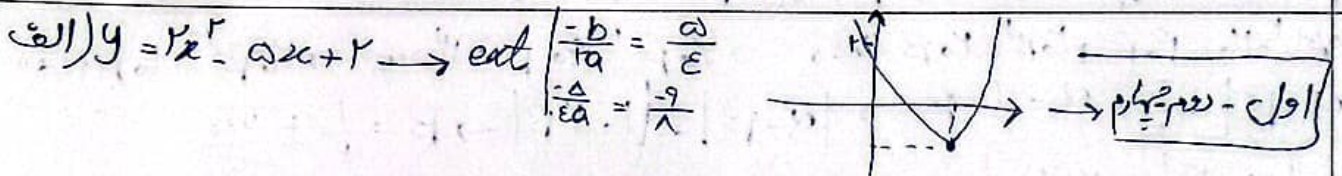 الف) y = ۲x² - ۵x + ۲ → ext | -b/۲a = ۵/۴
-Δ/۴a = -۹/۸
۲
→ اول - دوم - چهارم